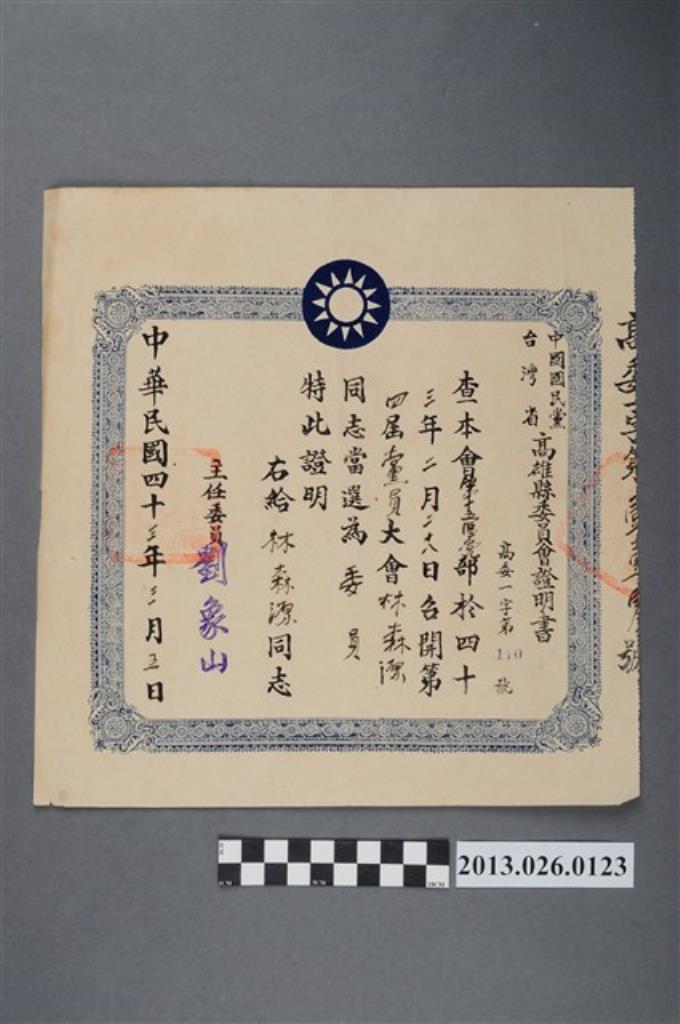 中國國民黨
台灣省
高雄縣委員會證明書
高委一字第110號
查本會第十五區黨部於四十
三年二月二八日召開第
四屆黨員大會林森源
同志當選為委員
特此證明
右給林森源同志
主任委員劉象山
中華民國四十三年三月五日
2013.026.0123